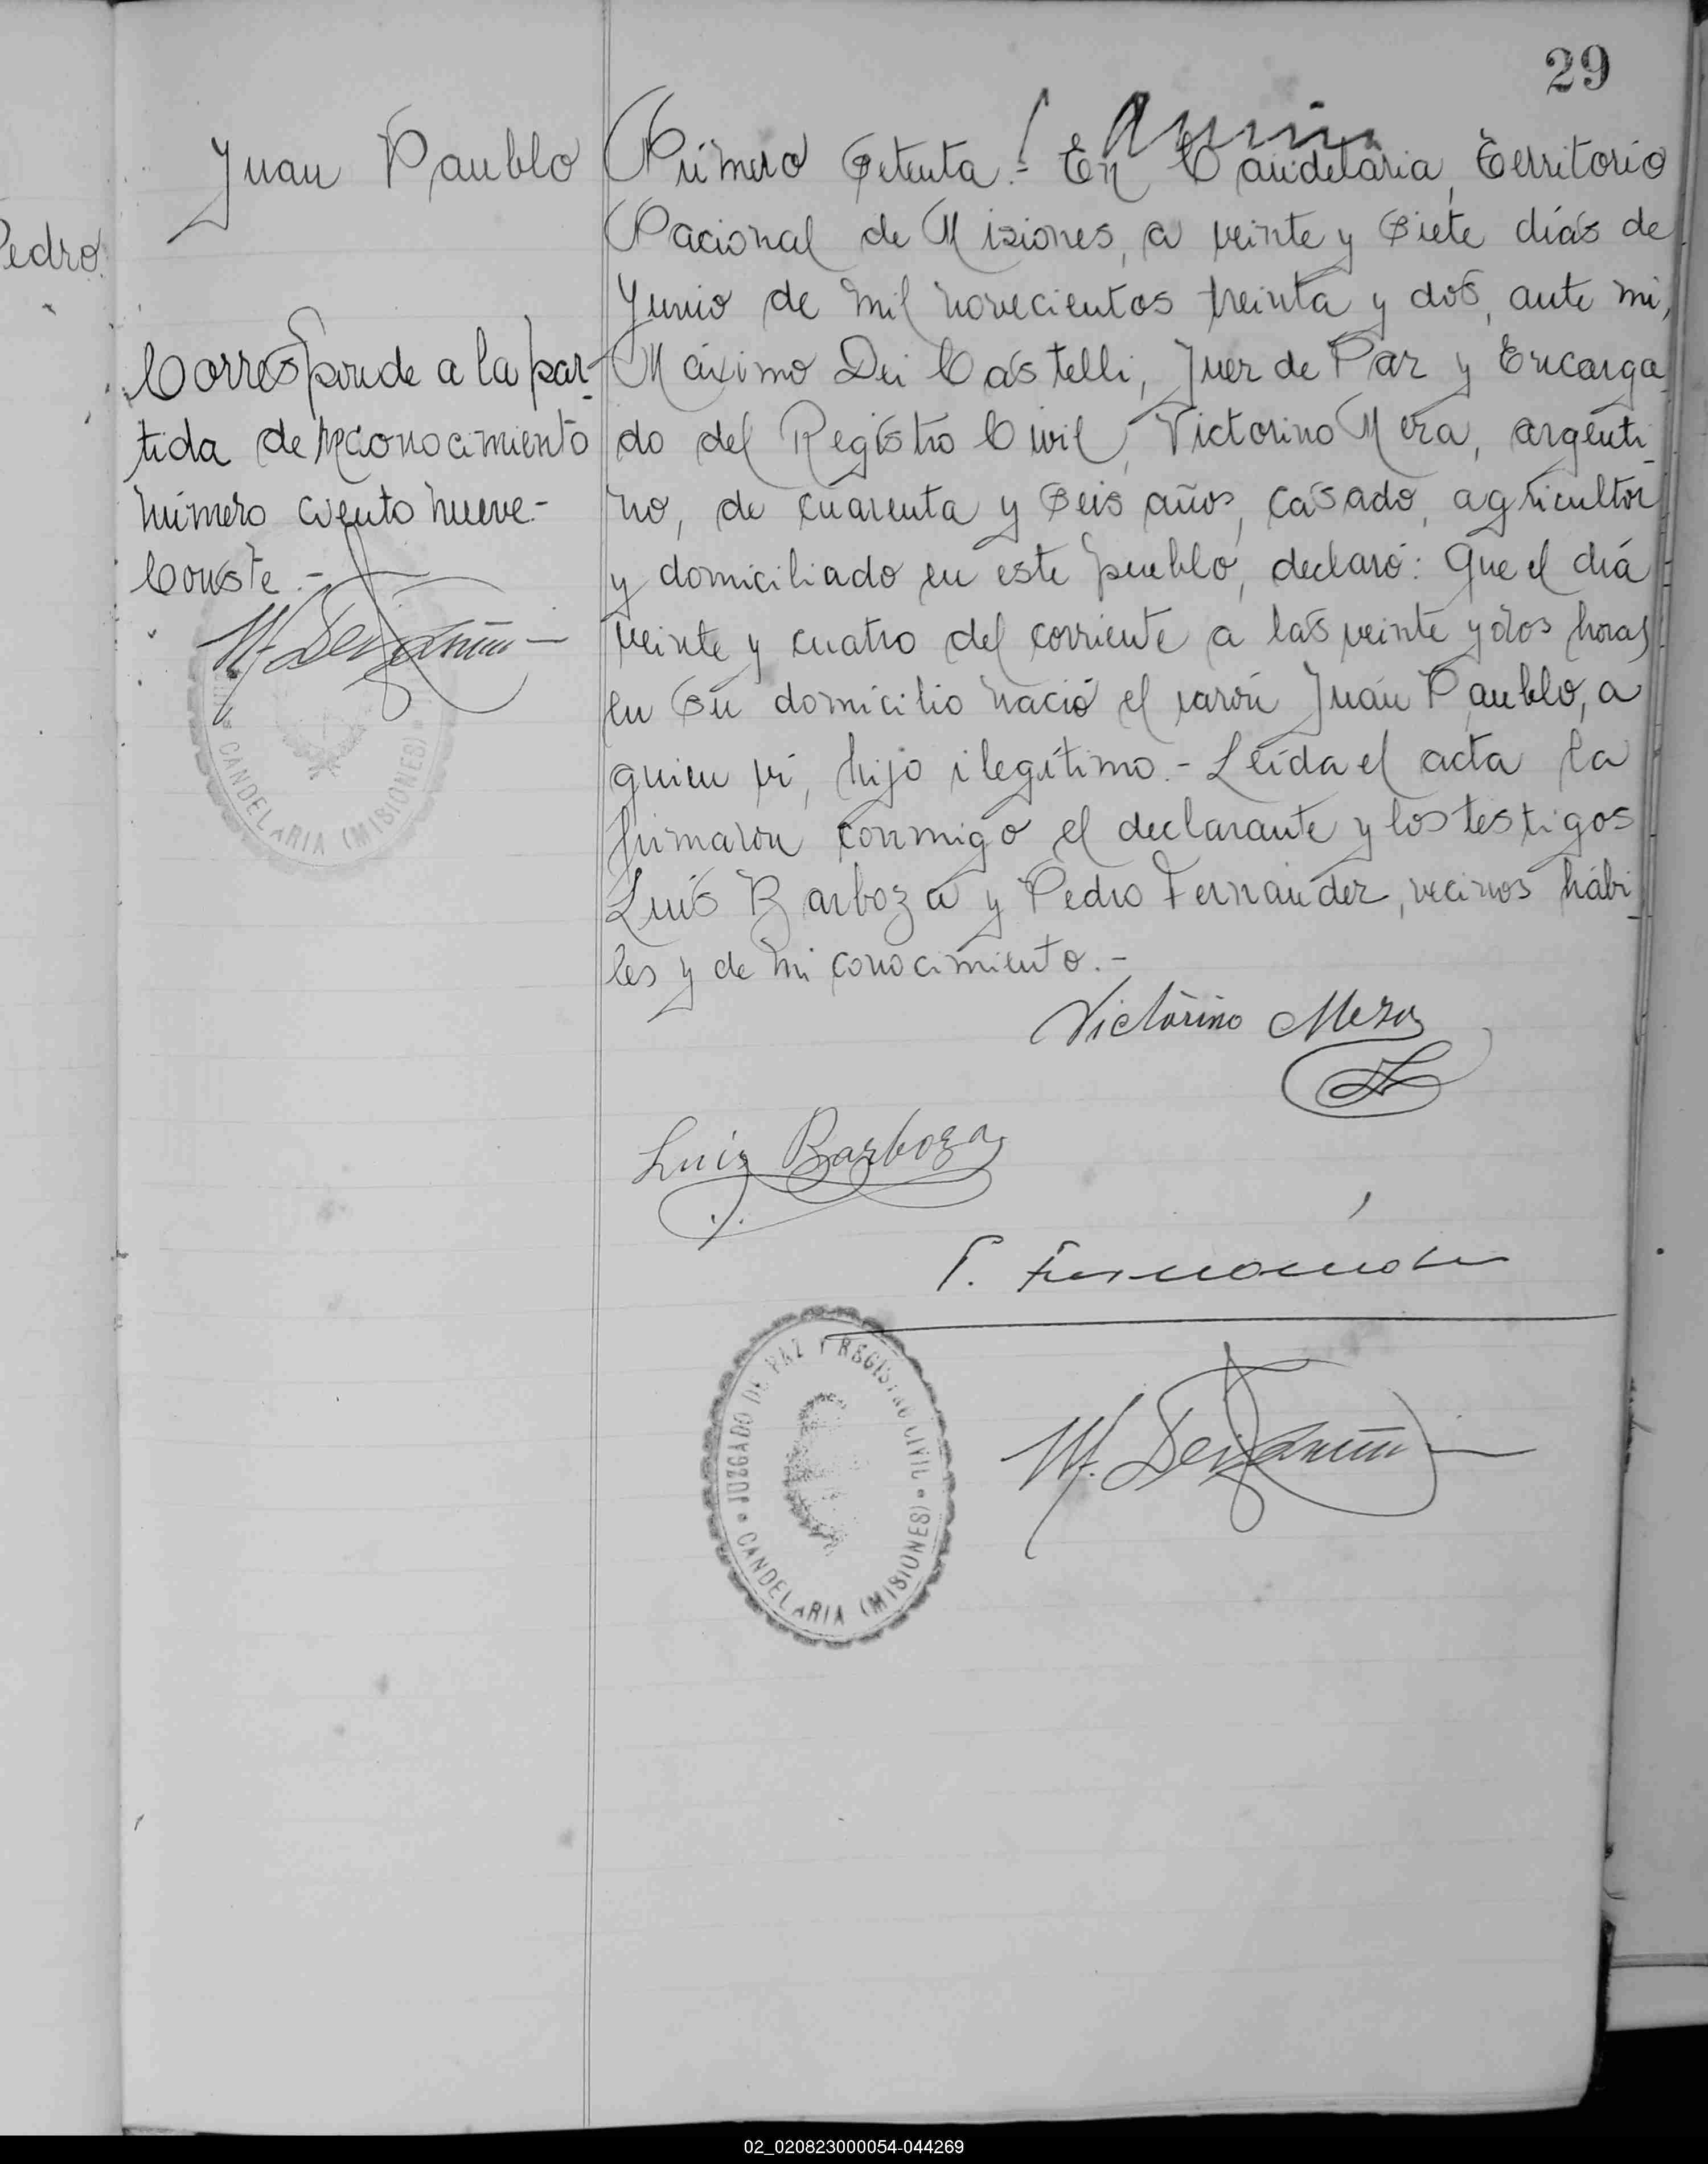 29
Pedro.
Juan Paublo
Corresponde a la par-
tida de reconocimiento
número ciento nueve.-
Conste.-
CANDELARIA (MISIONES)
Número Setenta.- En Candelaria, Territorio
Nacional de Misiones, a veinte y siete días de
Junio de mil novecientos treinta y dos, ante mi,
Máximo Dei Castelli, Juez de Paz y Encarga-
do del Registro Civil, Victorino Meza, argenti-
no, de cuarenta y seis años, casado, agricultor
y domiciliado en este pueblo, declaró: Que el día
veinte y cuatro del corriente a las veinte y dos horas
en su domicilio nació el varón Juan Paublo, a
quien vi, hijo ilegítimo.- Leída el acta la
firmaron conmigo el declarante y los testigos
Luis Barboza y Pedro Fernandez, vecinos hábi-
les y de mi conocimiento.-
Victorino Meza
Luis Barboza
P. Fernández
JUZGADO DE PAZ Y REGISTRO CIVIL
CANDELARIA (MISIONES)
02_020823000054-044269